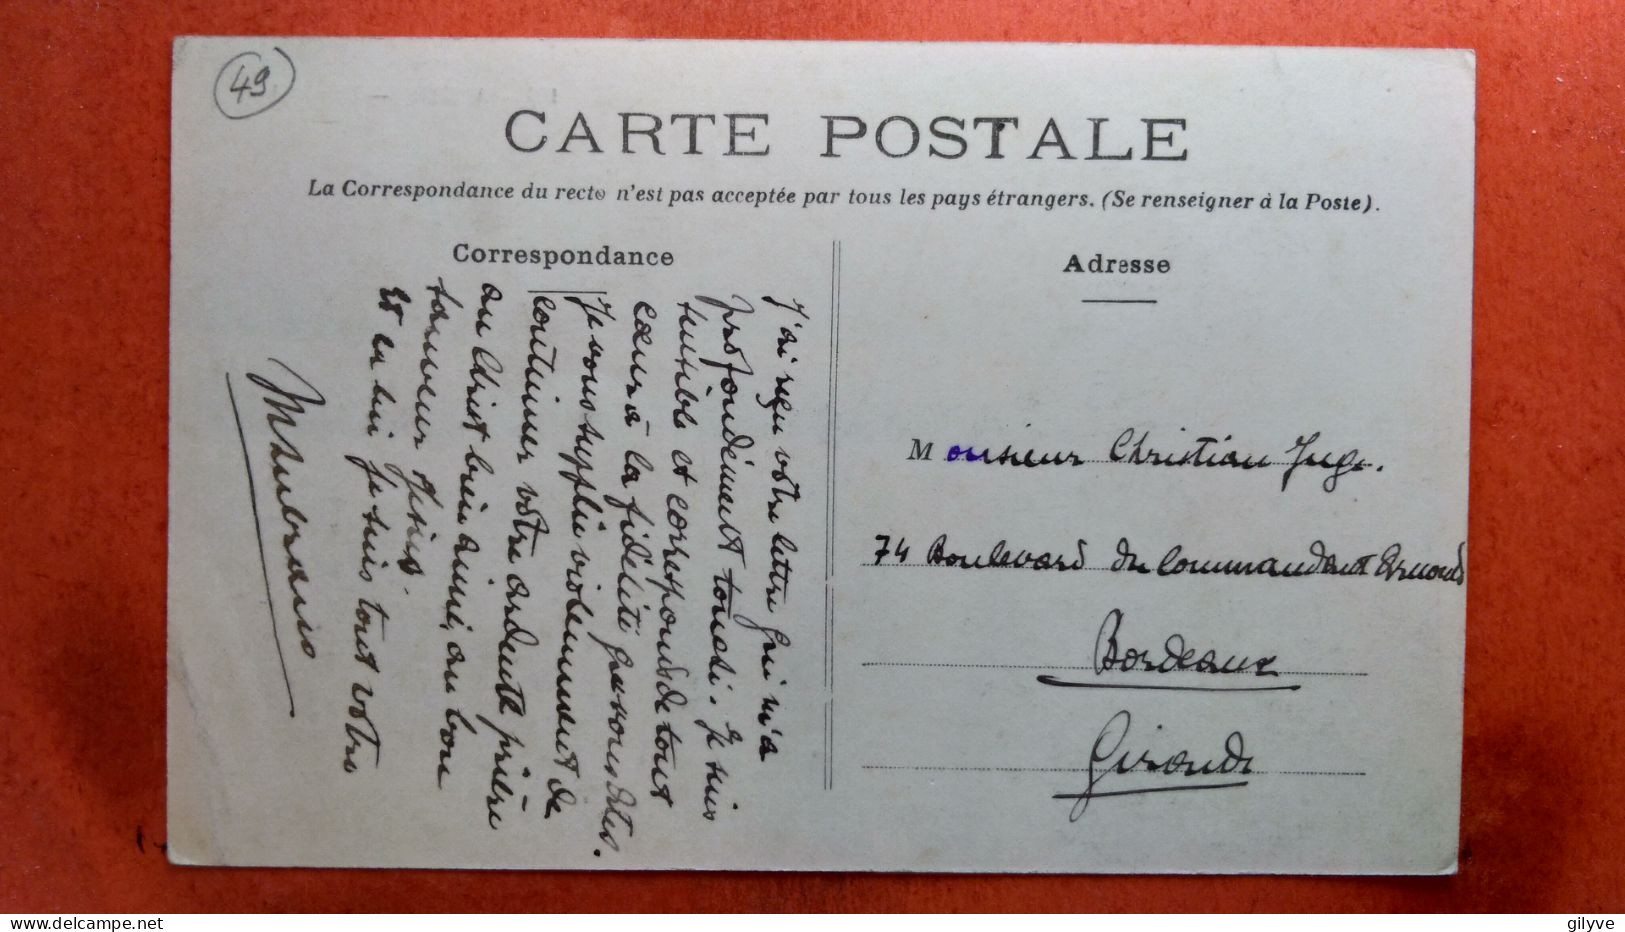 49
CARTE POSTALE
La Correspondance du recto n'est pas acceptée par tous les pays étrangers. (Se renseigner à la Poste).
Correspondance
J'ai reçu votre lettre qui m'a
profondément touché. Je suis
sensible et corresponds de tout
cœur à la fidélité que vous dites.
Je vous supplie violemment de
continuer votre ardente prière
au Christ bien aimé, au bon
sauveur Jésus.
Et en lui je suis tout votre
Adresse
Monsieur Christian Juge.
74 Boulevard du Commandant Arnould
Bordeaux
Gironde
gilyve